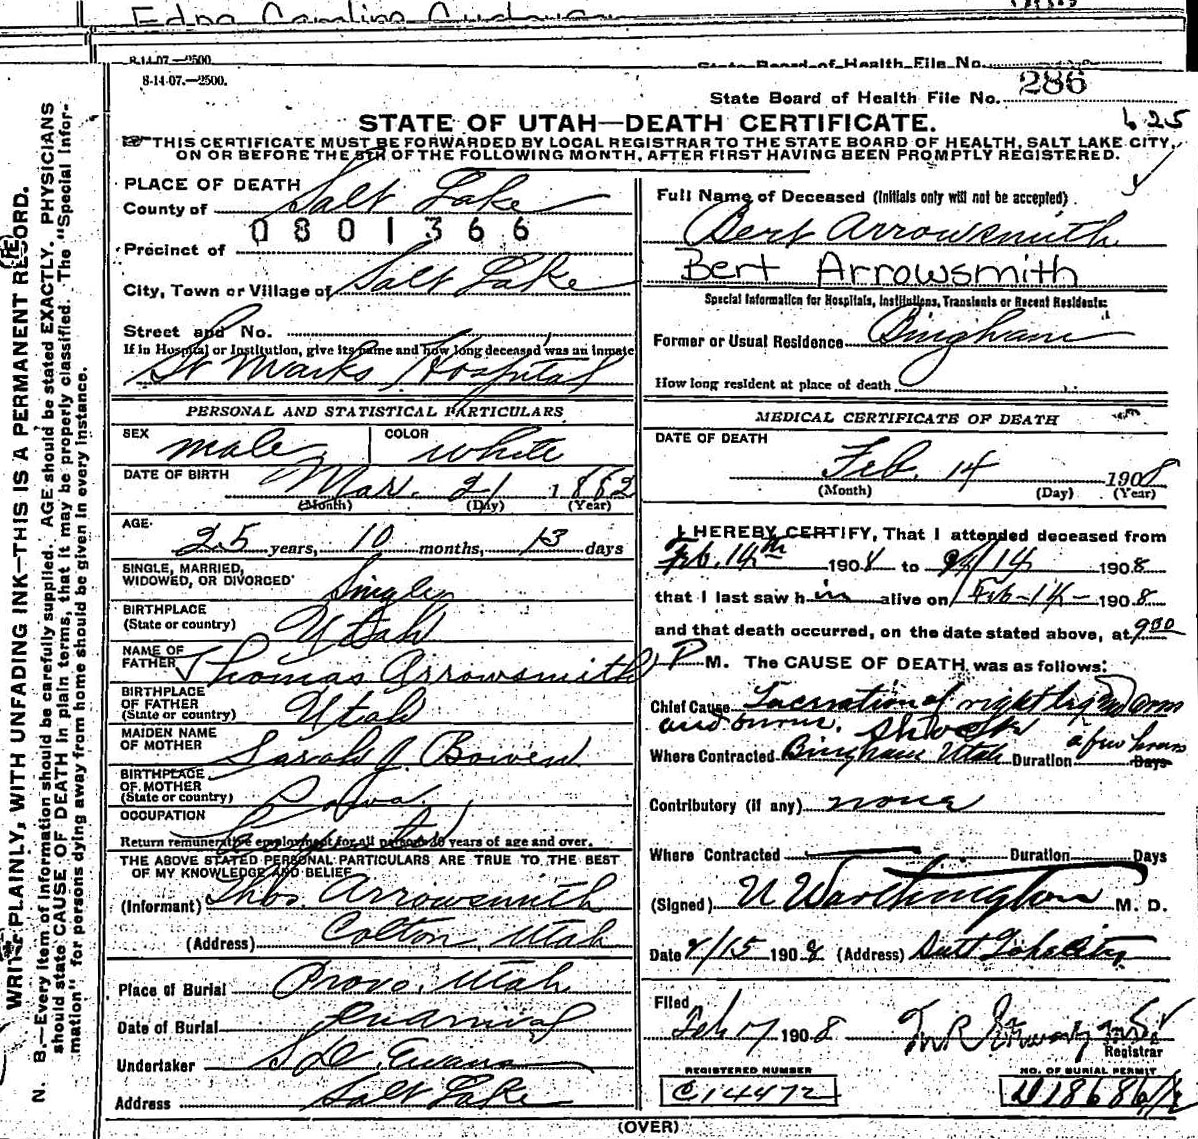 Edna Caroline Anderson
8-14-07.—2500.
State Board of Health File No.
8-14-07.—2500.
State Board of Health File No. 286
STATE OF UTAH—DEATH CERTIFICATE.
625
THIS CERTIFICATE MUST BE FORWARDED BY LOCAL REGISTRAR TO THE STATE BOARD OF HEALTH, SALT LAKE CITY,
ON OR BEFORE THE 5TH OF THE FOLLOWING MONTH, AFTER FIRST HAVING BEEN PROMPTLY REGISTERED.
WRITE PLAINLY, WITH UNFADING INK—THIS IS A PERMANENT RECORD.
N. B.—Every item of information should be carefully supplied. AGE should be stated EXACTLY. PHYSICIANS
should state CAUSE OF DEATH in plain terms, that it may be properly classified. The "Special Infor-
mation" for persons dying away from home should be given in every instance.
PLACE OF DEATH
County of Salt Lake
0801366
Precinct of
City, Town or Village of Salt Lake
Street and No.
If in Hospital or Institution, give its name and how long deceased was an inmate
St Marks Hospital
PERSONAL AND STATISTICAL PARTICULARS
SEX male COLOR white
DATE OF BIRTH Mar. 21 1882
(Month) (Day) (Year)
AGE
25 years, 10 months, 13 days
SINGLE, MARRIED,
WIDOWED, OR DIVORCED Single
BIRTHPLACE
(State or country) Utah
NAME OF
FATHER Thomas Arrowsmith
BIRTHPLACE
OF FATHER
(State or country) Utah
MAIDEN NAME
OF MOTHER Sarah J. Bowen
BIRTHPLACE
OF MOTHER
(State or country) Iowa
OCCUPATION
Return remunerative employment for all persons 10 years of age and over.
THE ABOVE STATED PERSONAL PARTICULARS ARE TRUE TO THE BEST
OF MY KNOWLEDGE AND BELIEF
(Informant) Thos. Arrowsmith
(Address) Colton, Utah
Place of Burial Provo, Utah
Date of Burial
Undertaker S. D. Evans
Address Salt Lake
Full Name of Deceased (Initials only will not be accepted)
Bert Arrowsmith
Bert Arrowsmith
Special Information for Hospitals, Institutions, Transients or Recent Residents:
Former or Usual Residence Bingham
How long resident at place of death
MEDICAL CERTIFICATE OF DEATH
DATE OF DEATH
Feb. 14 1908
(Month) (Day) (Year)
I HEREBY CERTIFY, That I attended deceased from
Feb. 14th 1908 to 2/14 1908
that I last saw him alive on Feb-14- 1908
and that death occurred, on the date stated above, at 900
P M. The CAUSE OF DEATH was as follows:
Chief Cause Laceration of right leg and arm
and burns. Shock
Where Contracted Bingham Utah Duration a few hours Days
Contributory (if any) none
Where Contracted Duration Days
(Signed) U Worthington M. D.
Date 2/15 1908 (Address) Salt Lake City
Filed
Feb 17 1908
Registrar
REGISTERED NUMBER
C14472
NO. OF BURIAL PERMIT
(OVER)